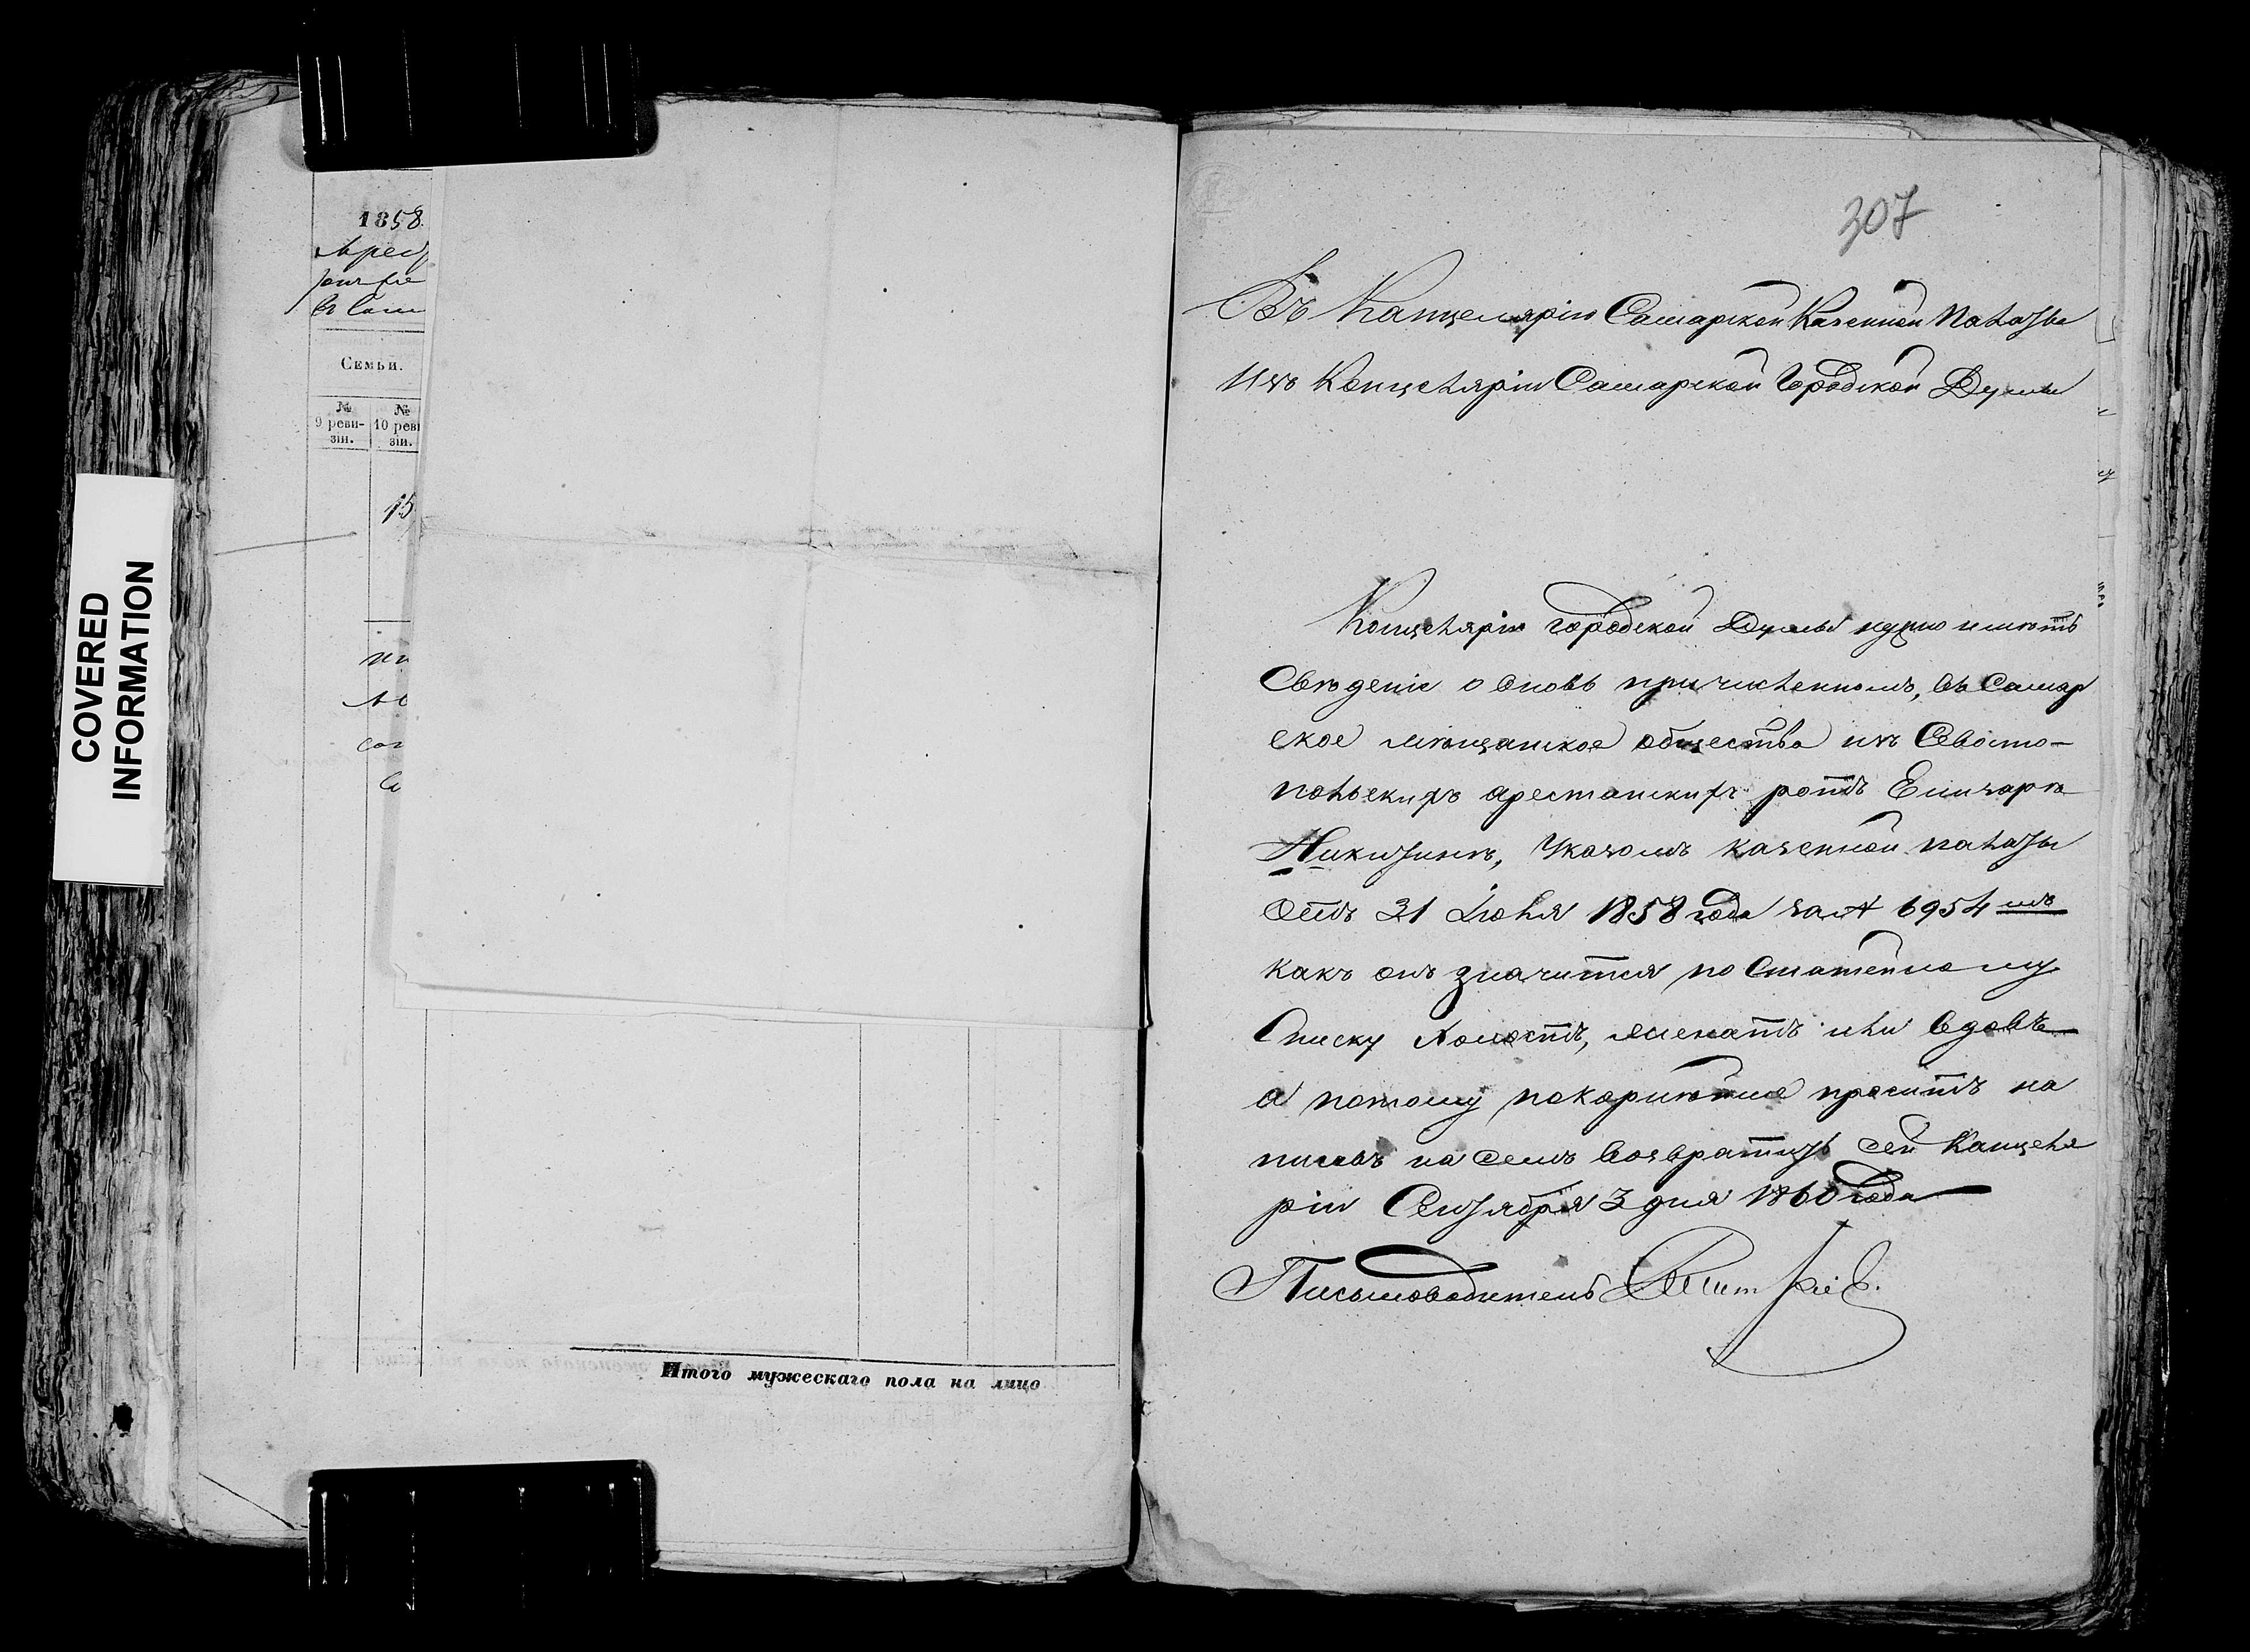 COVERED
INFORMATION
1858
Семьи.
№ №
9 реви- 10 реви
зіи. зіи.
15
Итого мужескаго пола на лицо
307
Въ Канцелярію Самарской Казенной Палаты
Изъ Канцеляріи Самарской Городской Думы
Канцеляріи городской Думы нужно имѣть
Сведеніе о вновь причисленномъ, въ Самар
ское мѣщанское общество изъ Севасто-
польскихъ арестанскихъ ротъ
Никитинѣ, Указомъ казенной палаты
отъ 31 Іюля 1858 года за № 6954 мъ
какъ онъ значится по Статейному
Списку холостъ, женатъ или вдовъ
а потому покорнѣйше проситъ на
писавъ на семъ возвратить сей Канцеля
ріи Сентября 3 дня 1860 года
Письмоводитель